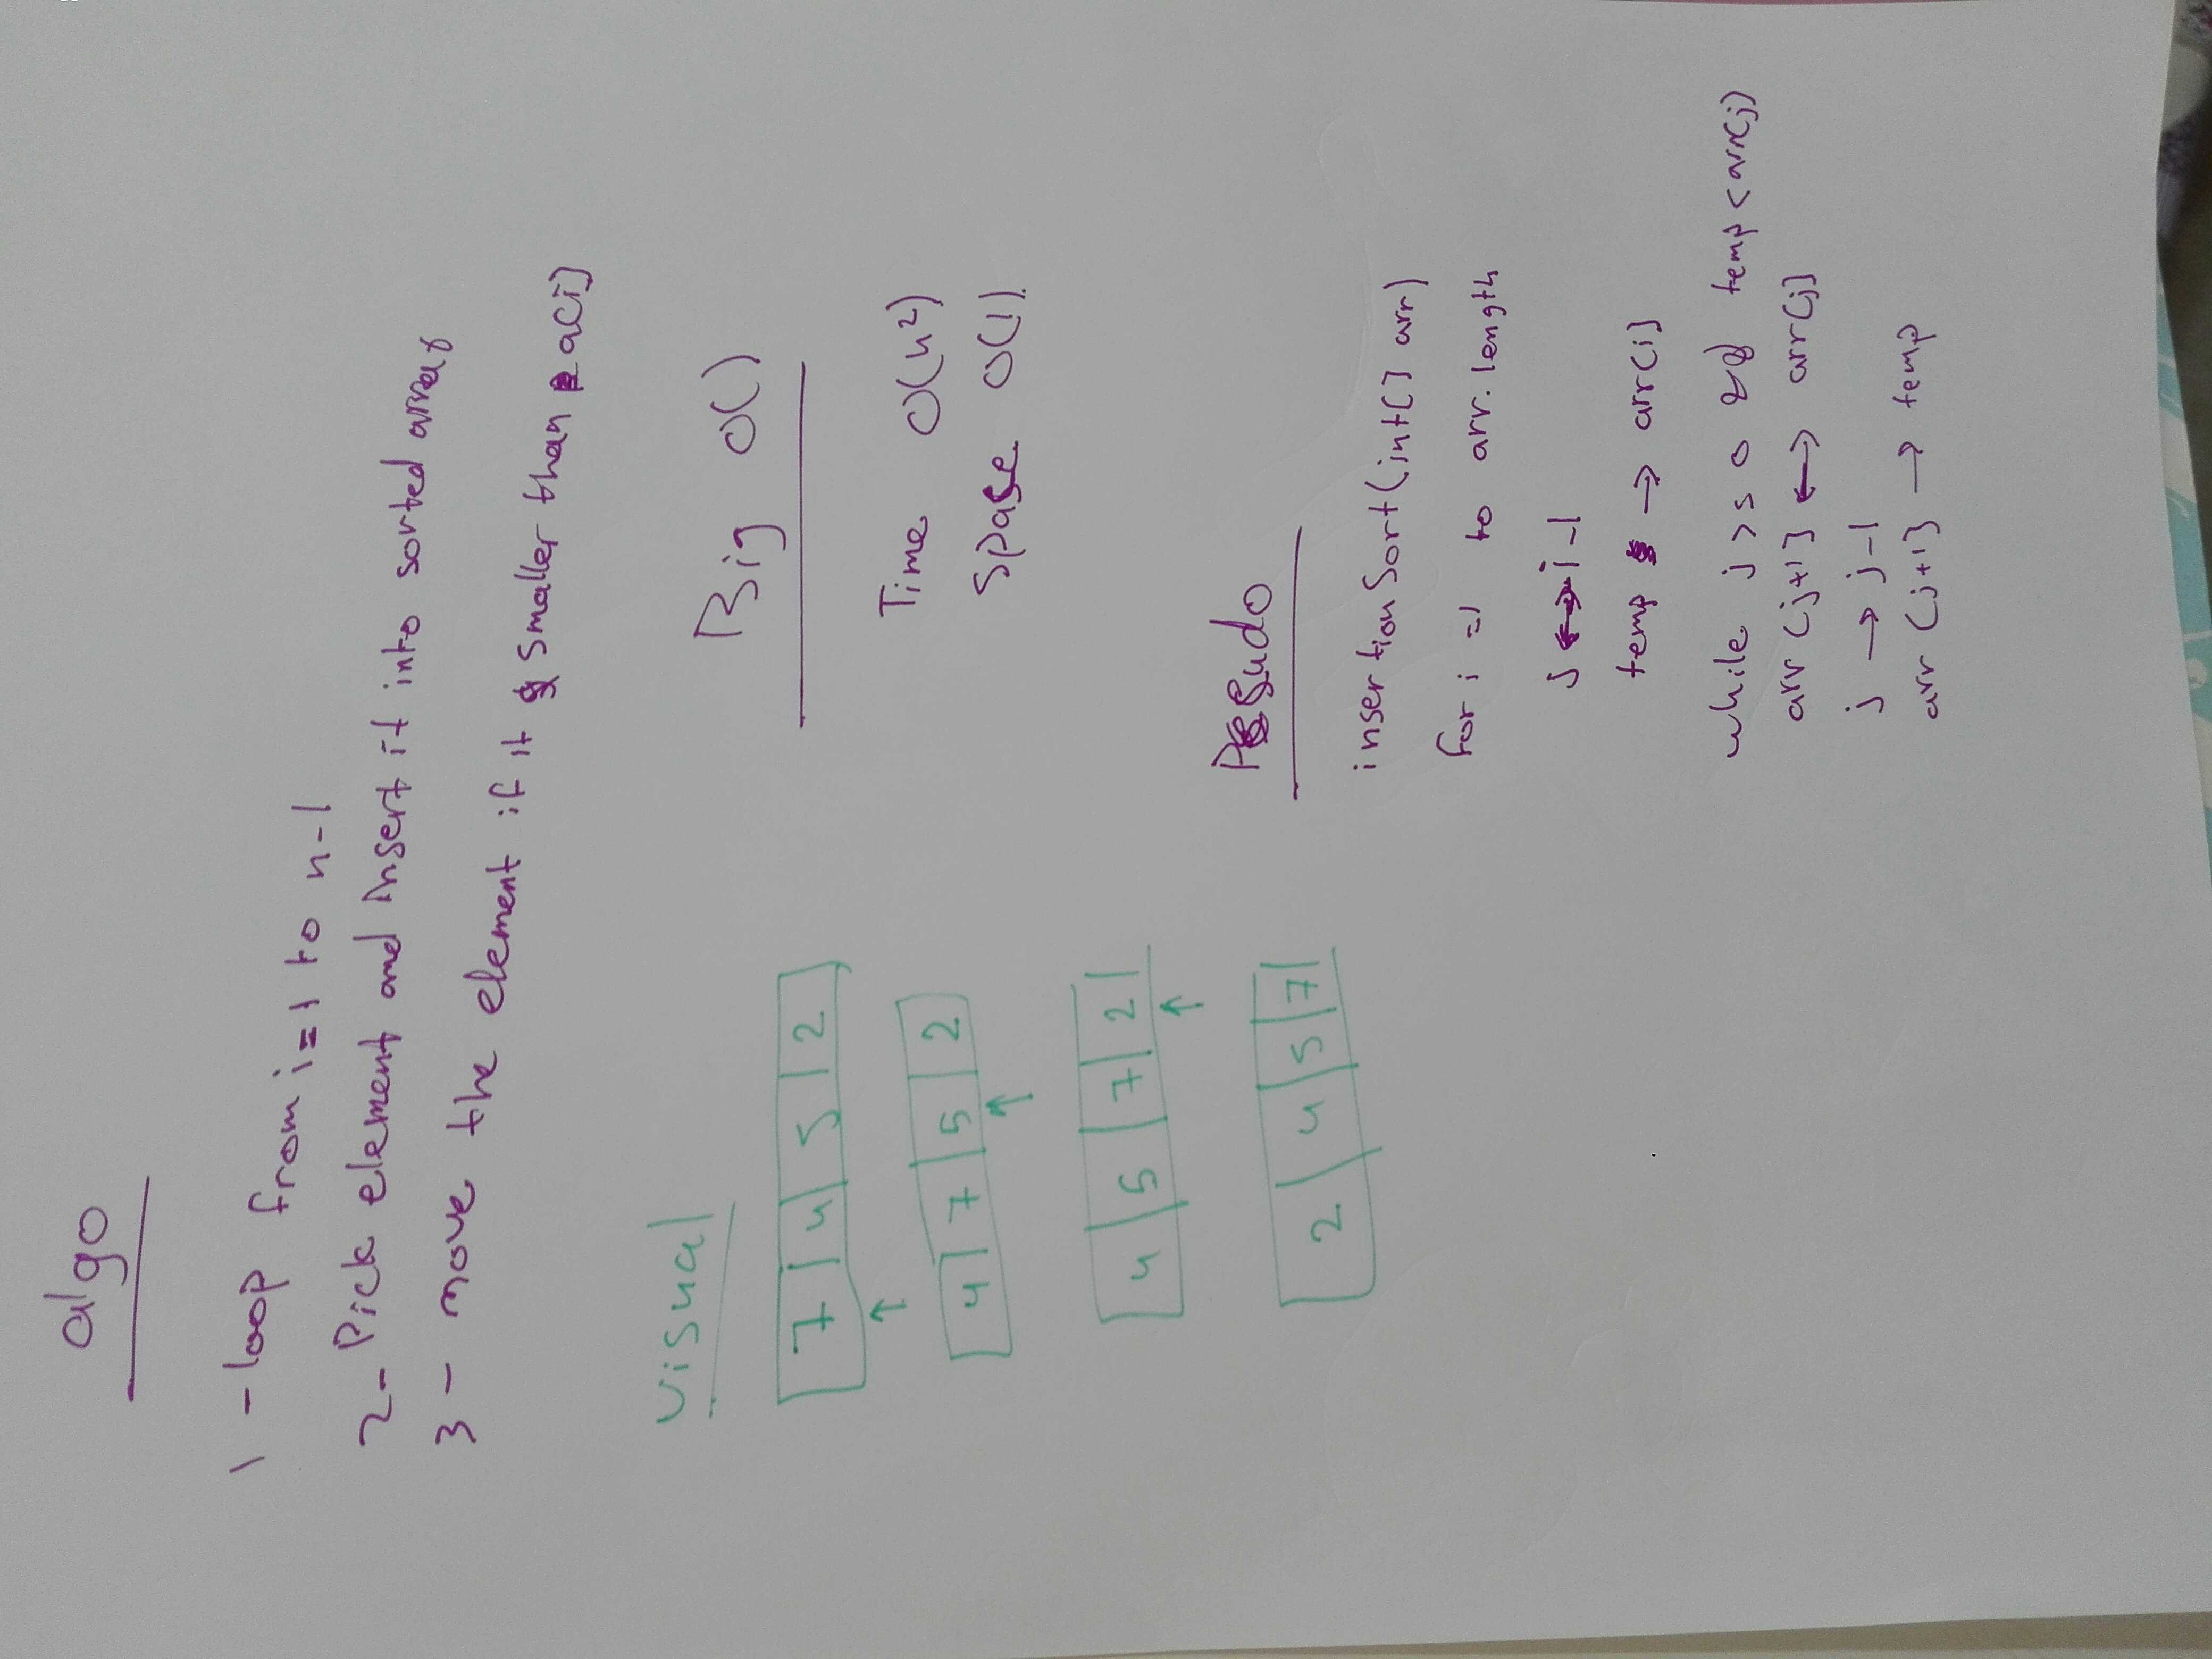 algo
1 - loop from i = 1 to n-1
2- Pick element and Insert it into sorted array
3 - move the element if it smaller than a[i]
Visual
7 4 5 2
↑
4 7 5 2
↑
4 5 7 2
↑
2 4 5 7
Big O()
Time O(n²)
Space O(1)
Pesudo
insertionSort(int[] arr)
for i =1 to arr.length
j ↔ i-1
temp → arr[i]
while j >= 0 && temp < arr[j]
arr [j+1] ↔ arr[j]
j → j-1
arr [j+1] → temp